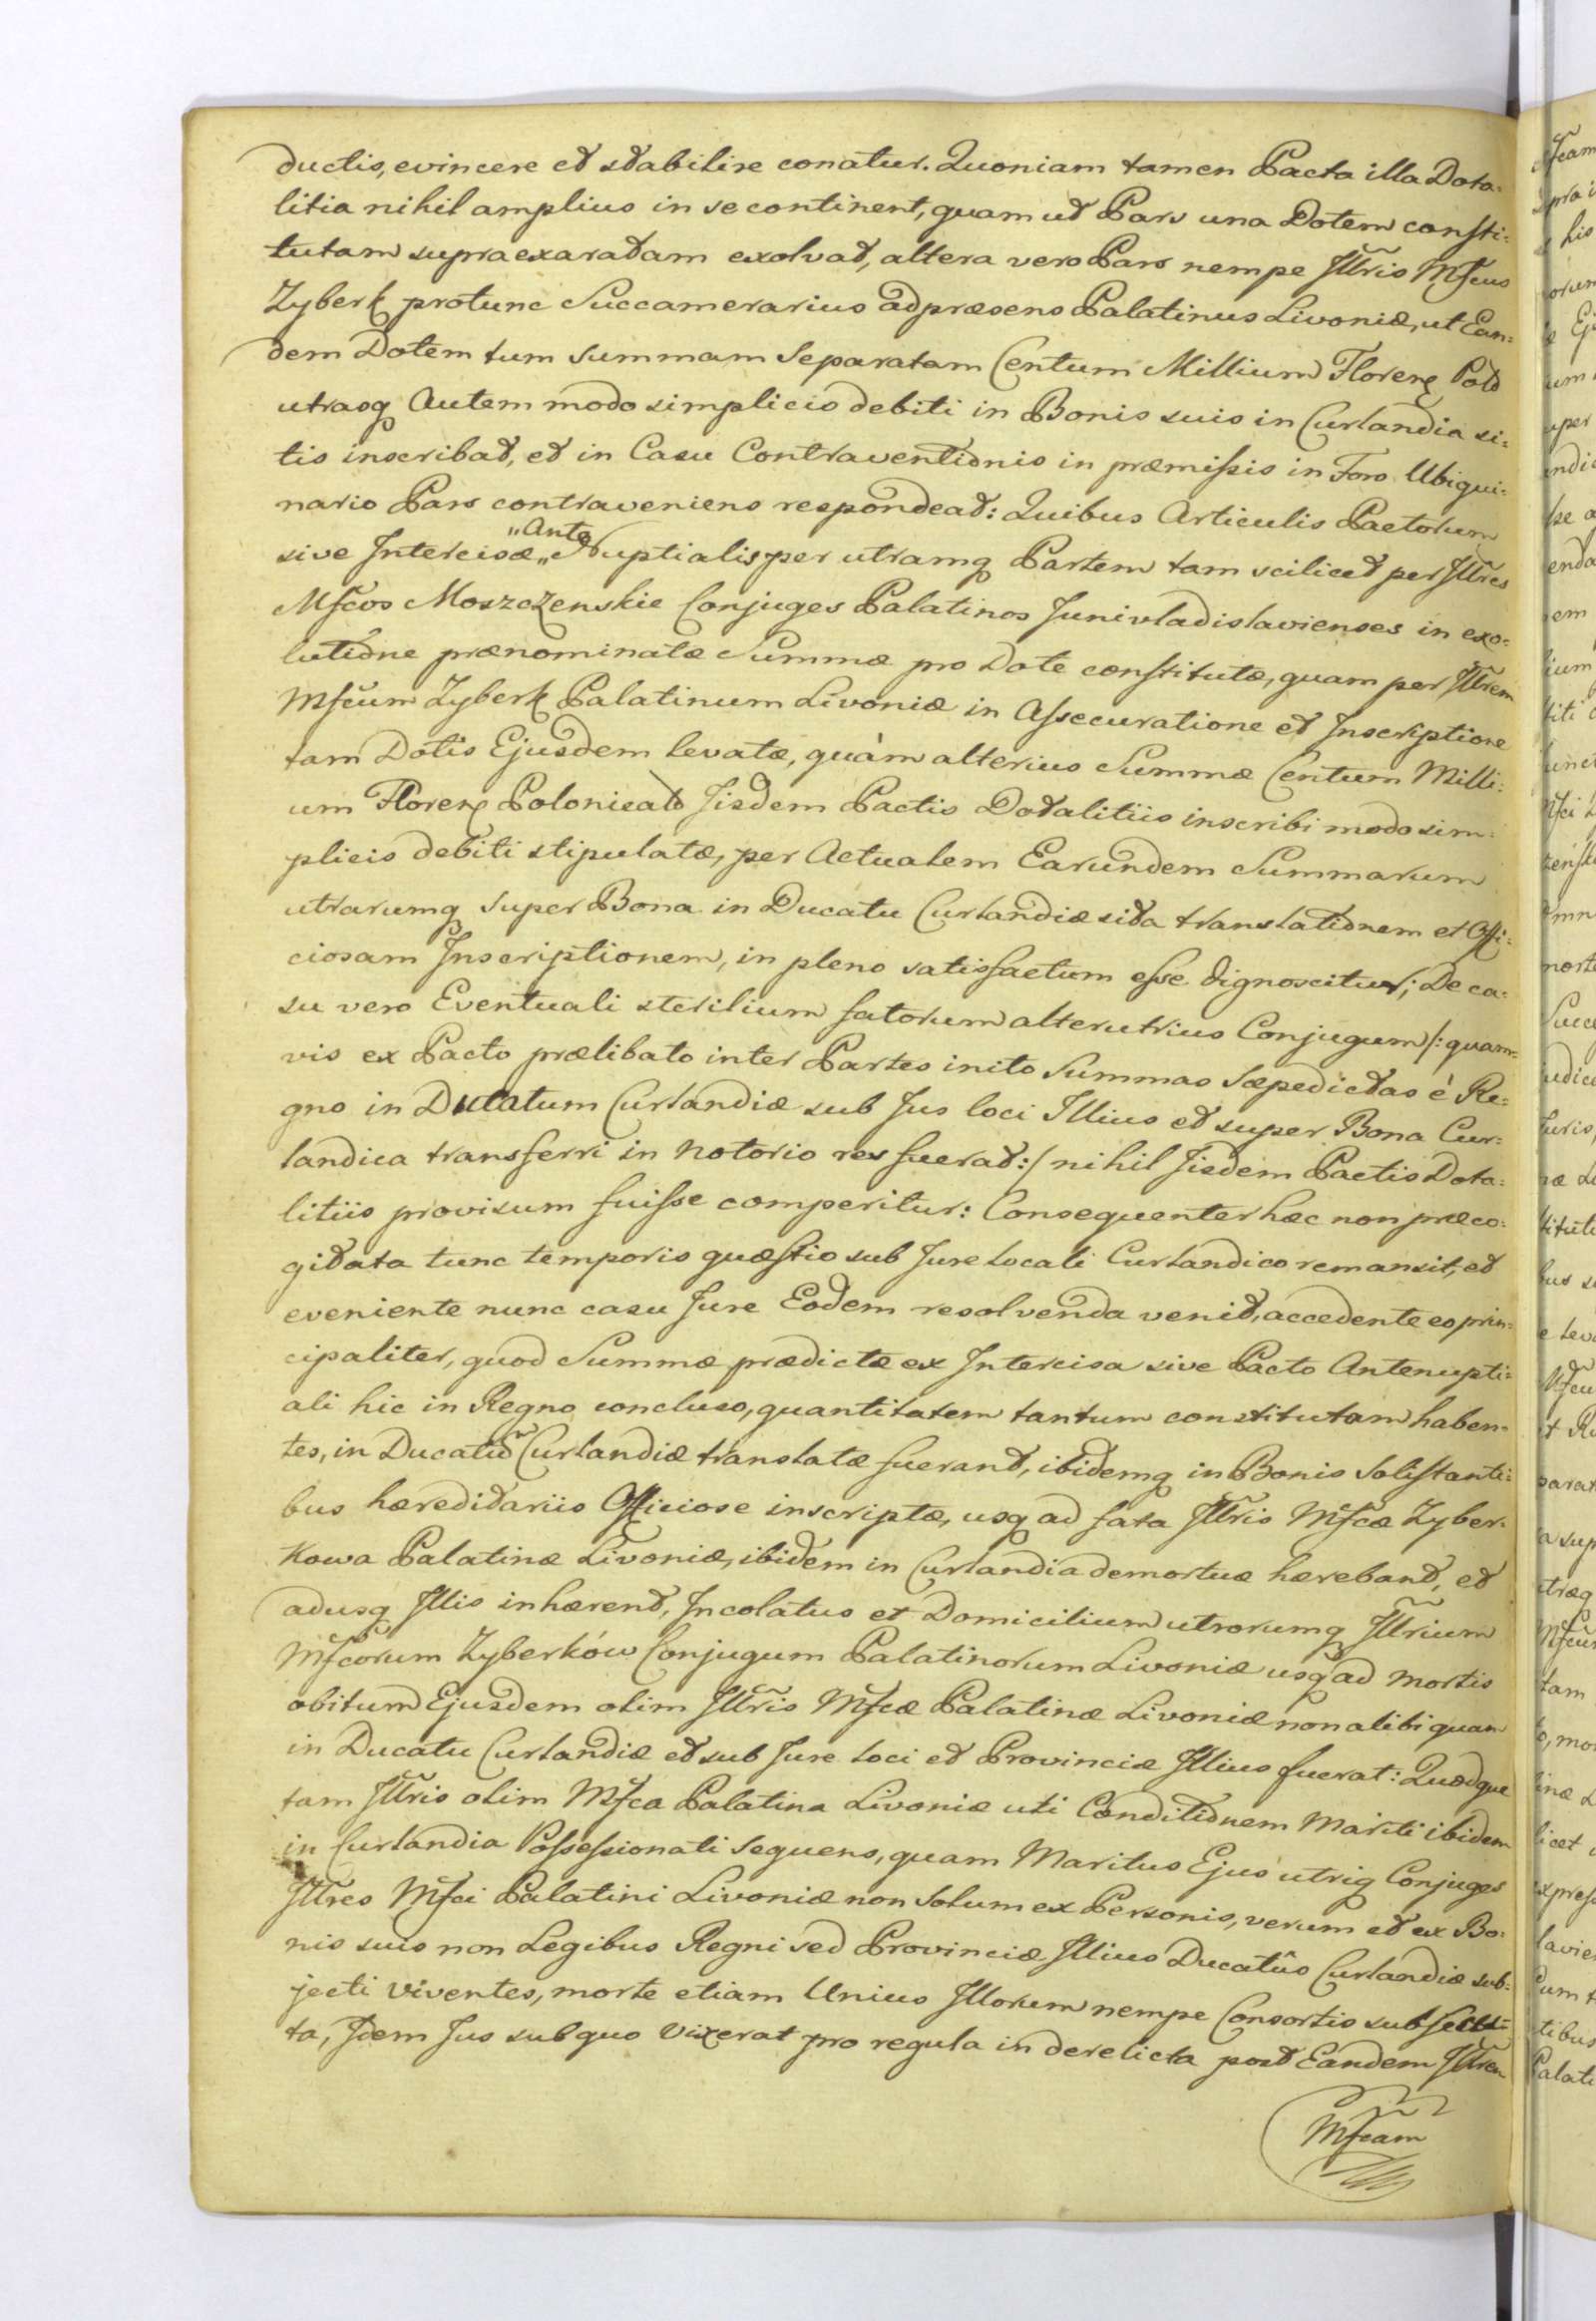 ductis, evincere et stabilire conatur. Quoniam tamen Pacta illa Dota=
litia nihil amplius in se continent, quam ut Pars una Dotem consti=
tutam supraexaratam exolvat, altera vero Pars nempe Illris Mfcus
Zyberk protunc Succamerarius adpræsens Palatinus Livoniæ, ut Ean=
dem Dotem tum Summam Separatam Centum Millium Floren Pold
utrasq Autem modo simplicis debiti in Bonis suis in Curlandia si=
tis inscribat, et in Casu Contraventionis in præmissis in Foro Ubiqui=
nario Pars contraveniens respondeat: Quibus Articulis Pactorum
sive Intercisæ „Ante„ Nuptialis per utramq Partem tam scilicet per Illres
Mfcos Moszczenskie Conjuges Palatinos Junivladislavienses in exo=
lutione prænominatæ Summæ pro Dote constitutæ, quam per Illrem
Mfcum Zyberk Palatinum Livoniæ in Assecuratione et Inscriptione
tam Dotis Ejusdem levatæ, quàm alterius Summæ Centum Milli=
um Floren Polonicato Iisdem Pactis Dotalitiis inscribi modo sim=
plicis debiti stipulatæ, per Actualem Earundem Summarum
utrarumq super Bona in Ducatu Curlandiæ sita translationem et Offi=
ciosam Inscriptionem, in pleno satisfactum esse dignoscitur; De ca=
su vero Eventuali sterilium fatorum alterutrius Conjugum /: quam=
vis ex Pacto prælibato inter Partes inito Summas Sæpedictas é Re=
gno in Ducatum Curlandiæ sub Jus loci Illius et super Bona Cur=
landica transferri in notorio res fuerat :/ nihil Iisdem Pactis Dota=
litiis provisum fuisse comperitur: Consequenter hæc non præco=
gitata tunc temporis quæstio sub Jure locali Curlandico remansit, et
eveniente nunc casu Jure Eodem resolvenda venit, accedente eo prin=
cipaliter, quod Summæ prædictæ ex Intercisa sive Pacto Antenupti=
ali hic in Regno concluso, quantitatem tantum constitutam haben=
tes, in Ducatũ Curlandiæ translatæ fuerant, ibidemq in Bonis Solistanti=
bus hæreditariis Officiose inscriptæ, usq ad fata Illris Mfcæ Zyber=
kowa Palatinæ Livoniæ, ibidem in Curlandia demortuæ hærebant, et
adusq Illis inhærent, Incolatus et Domicilium utrorumq Illrium
Mfcorum Zyberków Conjugum Palatinorum Livoniæ usq ad mortis
obitum Ejusdem olim Illris Mfcæ Palatinæ Livoniæ non alibi quam
in Ducatu Curlandiæ et sub Jure loci et Provinciæ Illius fuerat: Quodque
tam Illris olim Mfca Palatina Livoniæ uti Conditionem Mariti ibidem
in Curlandia Possessionati Sequens, quam Maritus Ejus utriq Conjuges
Illres Mfci Palatini Livoniæ non Solum ex Personis, verum et ex Bo=
nis suis non Legibus Regni sed Provinciæ Illius Ducatûs Curlandiæ sub=
jecti viventes, morte etiam Unius Illorum nempe Consortis subsecu=
ta, Idem Jus sub quo vixerat pro regula in derelicta post Eandem Illrem
Mfcam